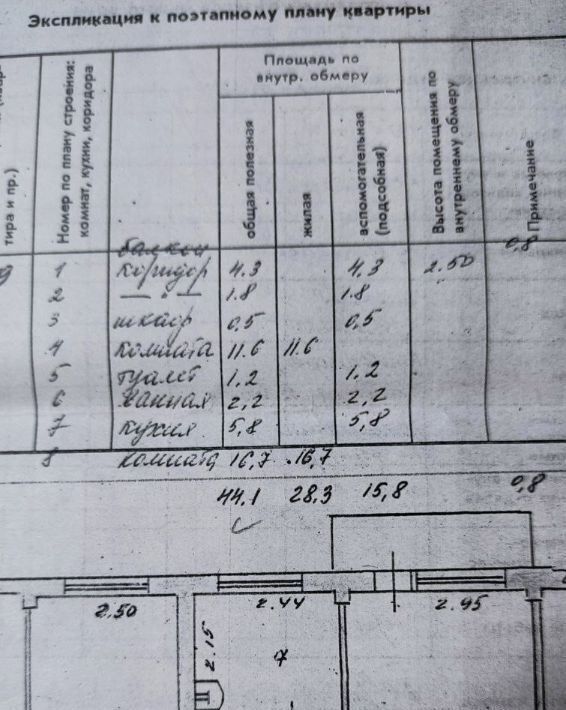 Экспликация к поэтапному плану квартиры
тира и пр.)
Номер по плану строения: комнат, кухни, коридора
Площадь по внутр. обмеру
общая полезная
жилая
вспомогательная (подсобная)
Высота помещения по внутреннему обмеру
Примечание
балкон 0,8
9 1 коридор 4.3 4.3 2.50
2 — " — 1.8 1.8
3 шкаф 0,5 0,5
4 комната 11.6 11.6
5 туалет 1,2 1,2
6 ванная 2,2 2,2
7 кухня 5,8 5,8
8 комната 16,7 16,7
44.1 28,3 15,8 0,8
2.50 2.44 2.95
2.15 7